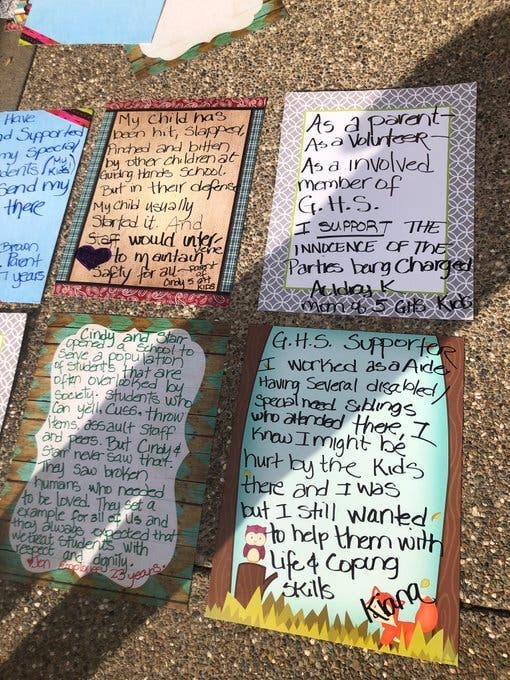 Have
nd Supported
my special
dents (My Kids)
send my
there
Parent
7 years
My Child has
been hit, slapped,
Pinched and bitten
by other children at
Guiding Hands school.
But in their defense
My child usually
Started it. And
Staff would inter-
vene
to maintain
Safty for all
Parent of
Cindy 5 GHS
Kids
As a parent-
As a Volunteer-
As a involved
member of
G.H.S.
I SUPPORT THE
INNOCENCE OF THE
Parties being Charged
Audrey K
mom of 5 GHS Kids
Cindy and Starr
opened a school to
serve a population
of students that are
often overlooked by
society. Students who
Can yell, Cuss, throw
items, assault Staff
and peers. But Cindy &
Starr never saw that.
They saw broken
humans who needed
to be loved. They set a
example for all of us and
they always expected that
we treat students with
respect and dignity.
Jen Employee 23 years.
G.H.S. Supporter
I worked as a Aide,
Having Several disabled/
special need siblings
who attended there, I
Know I might be
hurt by the Kids
there and I was
but I still wanted
to help them with
Life & Coping
Skills
Kiana